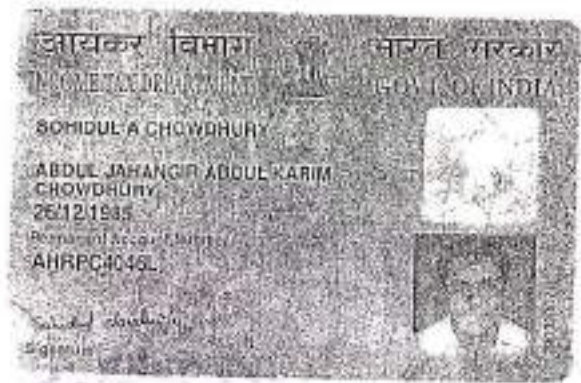 आयकर विभाग
भारत सरकार
INCOME TAX DEPARTMENT
GOVT. OF INDIA
SOHIDUL A CHOWDHURY
ABDUL JAHANGIR ABDUL KARIM
CHOWDHURY
26/12/1985
Permanent Account Number
AHRPC4046L
Signature